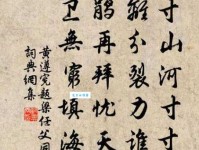 寸山河寸寸
離分裂力誰
鵑再拜忧天
卫無窮填海
黄遵宪题梁任父同
詞典網集